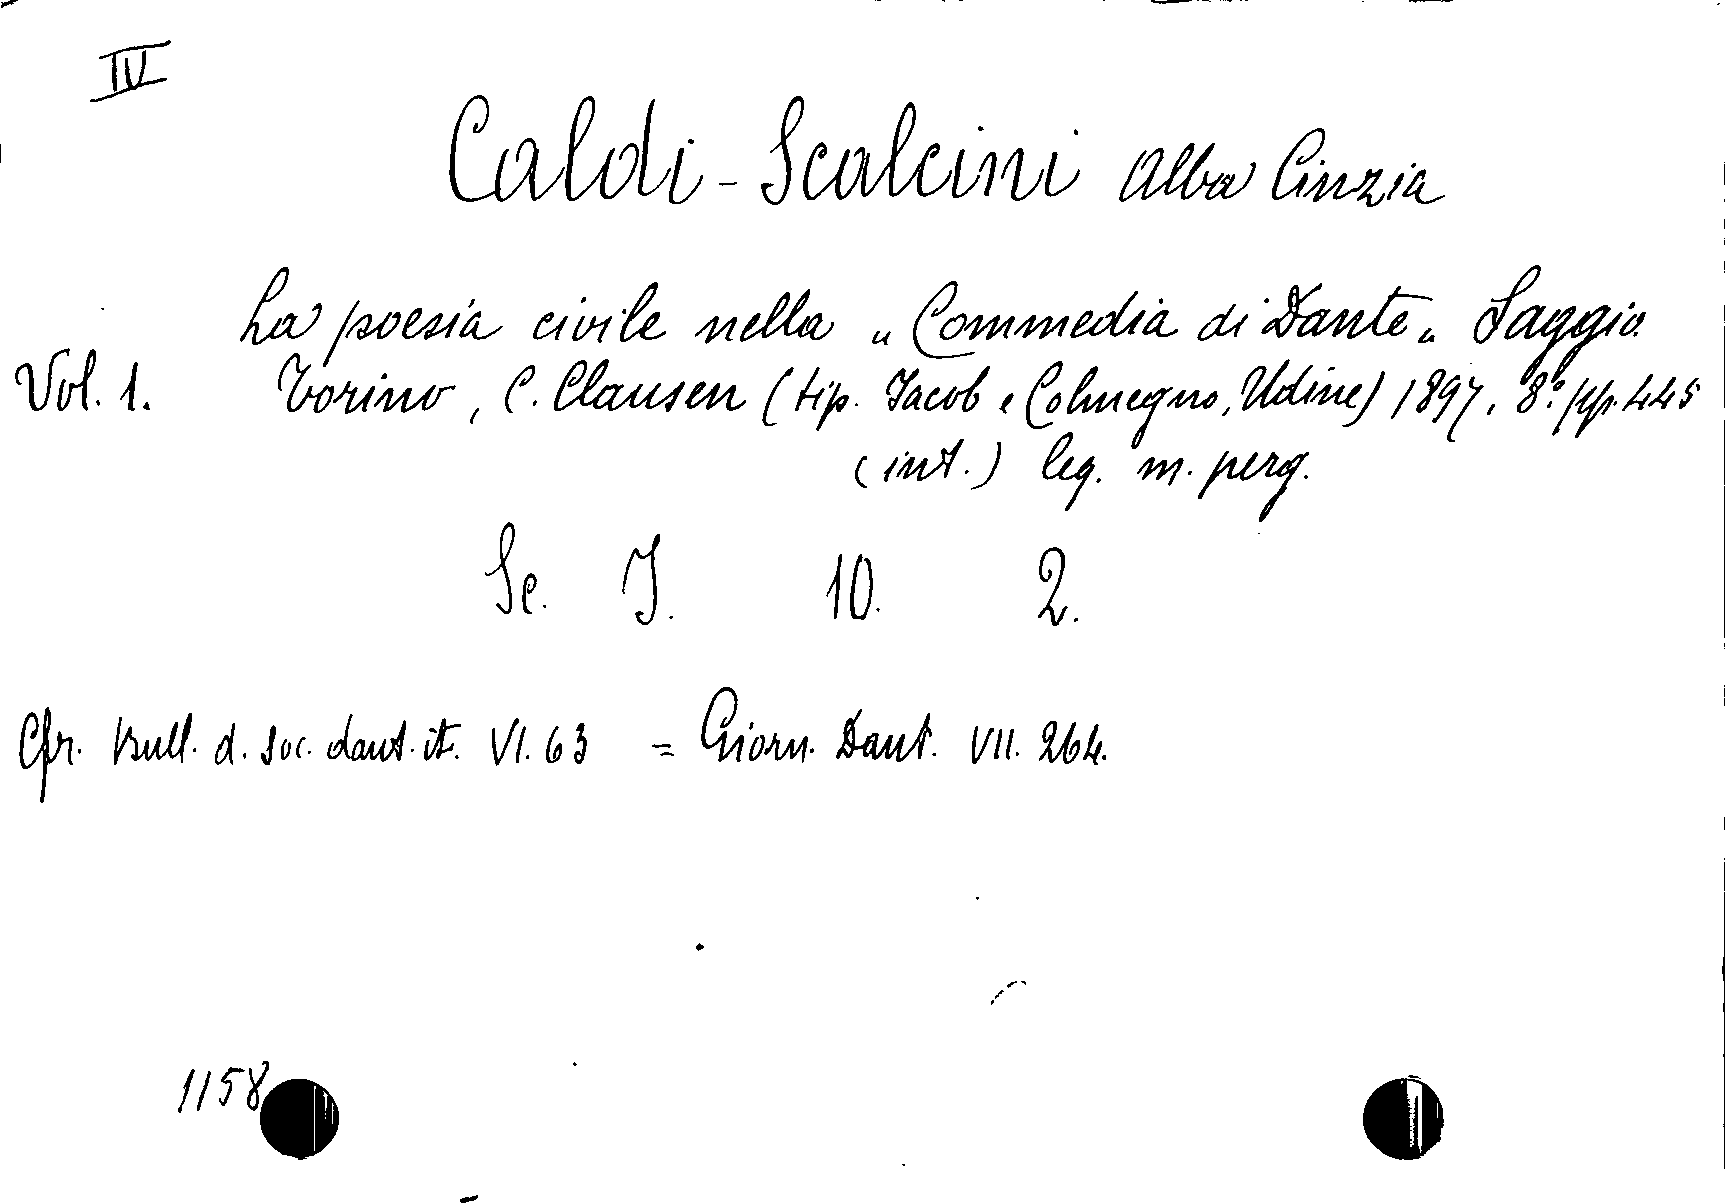 IV
Caldi-Scalcini Alba Cinzia
La poesia civile nella „Commedia di Dante„ Saggio.
Vol. 1. Torino, C. Clausen (tip. Jacob e Colmegno, Udine) 1897. 8º. pp. 445
(int.) leg. m. perg.
Sc. I. 10. 2.
Cfr. Bull. d. soc. dant. it. VI. 63 = Giorn. Dant. VII. 264.
1158